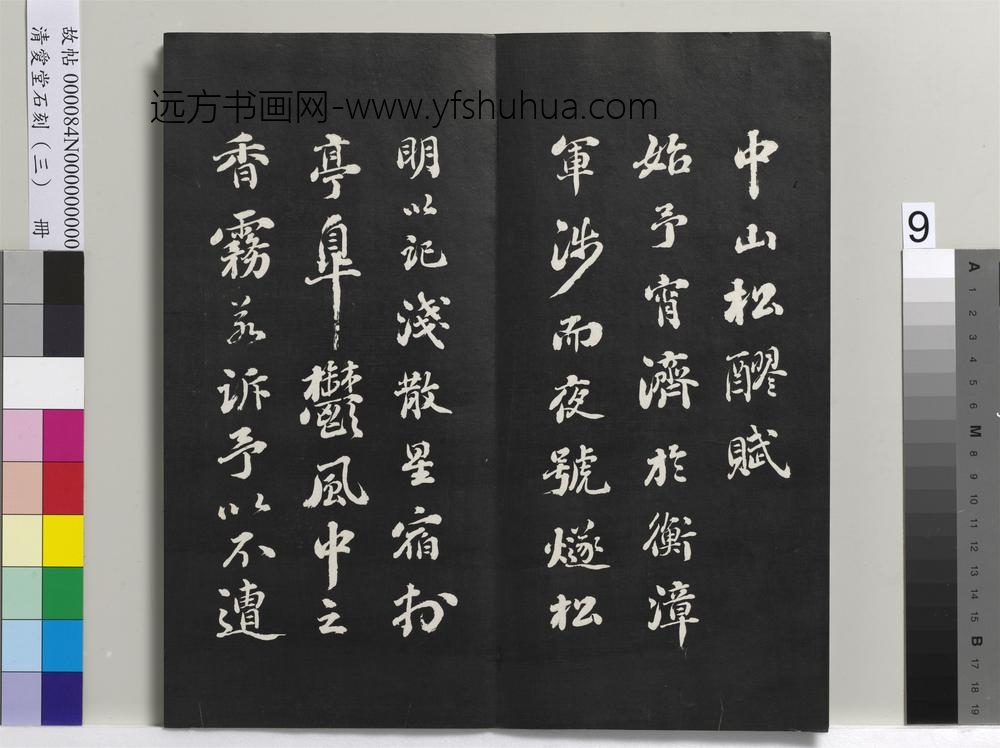 中山松醪賦
始予宵濟於衡漳
軍涉而夜號燧松
明以記淺散星宿於
亭阜鬱風中之
香霧若訴予以不遭
远方书画网-www.yfshuhua.com
故帖 000084N000000000
清愛堂石刻(三) 冊
9
A 1 2 3 4 5 6 M 8 9 10 11 12 13 14 15 B 17 18 19